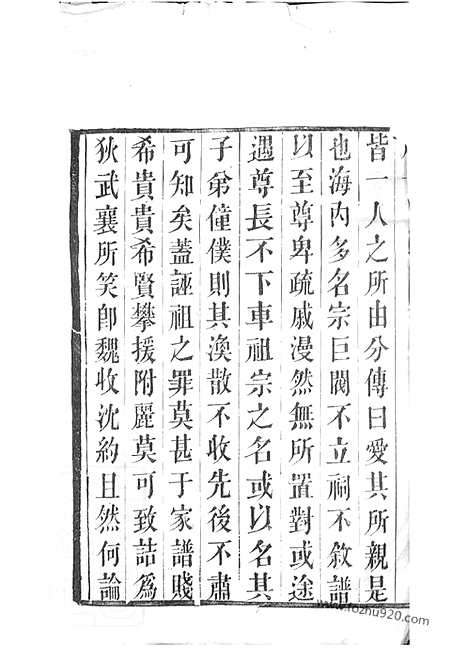 皆一人之所由分傳曰愛其所親是
也海內多名宗巨閥不立祠不敘譜
以至尊卑疏戚漫然無所置對或途
遇尊長不下車祖宗之名或以名其
子弟僮僕則其渙散不收先後不肅
可知矣蓋誣祖之罪莫甚于家譜賤
希貴貴希賢攀援附麗莫可致詰為
狄武襄所笑卽魏收沈約且然何論
www.fozhu920.com